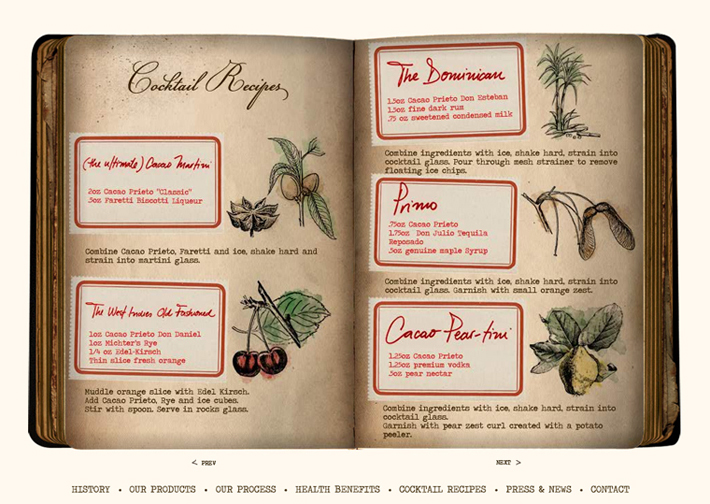 Cocktail Recipes
(the ultimate) Cacao Martini
2oz Cacao Prieto "Classic"
.5oz Faretti Biscotti Liqueur
Combine Cacao Prieto, Faretti and ice, shake hard and
strain into martini glass.
The West Indies Old Fashioned
1oz Cacao Prieto Don Daniel
1oz Michter's Rye
1/4 oz Edel-Kirsch
Thin slice fresh orange
Muddle orange slice with Edel Kirsch.
Add Cacao Prieto, Rye and ice cubes.
Stir with spoon. Serve in rocks glass.
The Dominican
1.5oz Cacao Prieto Don Esteban
1.5oz fine dark rum
.75 oz sweetened condensed milk
Combine ingredients with ice, shake hard, strain into
cocktail glass. Pour through mesh strainer to remove
floating ice chips.
Primo
.75oz Cacao Prieto
1.75oz Don Julio Tequila
Reposado
.5oz genuine maple Syrup
Combine ingredients with ice, shake hard, strain into
cocktail glass. Garnish with small orange zest.
Cacao-Pear-tini
1.25oz Cacao Prieto
1.25oz premium vodka
.5oz pear nectar
Combine ingredients with ice, shake hard, strain into
cocktail glass.
Garnish with pear zest curl created with a potato
peeler.
< PREV
NEXT >
HISTORY • OUR PRODUCTS • OUR PROCESS • HEALTH BENEFITS • COCKTAIL RECIPES • PRESS & NEWS • CONTACT